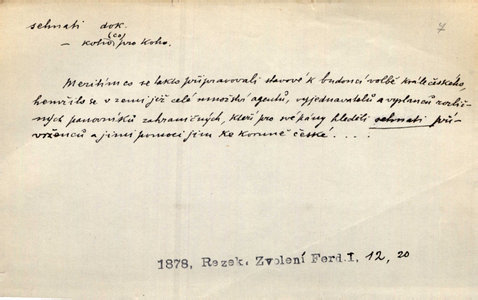 sehnati dok.
(co)
— koho pro koho.
7
Mezitím co se takto připravovali stavové k budoucí volbě krále českého,
hemžilo se v zemi již celé množství agentů, vyjednavatelů a vyslanců rozlič-
ných panovníků zahraničných, kteří pro své pány hleděli sehnati pří-
vrženců a jimi pomoci jim ke koruně české . . . .
1878, Rezek, Zvolení Ferd. I, 12, 20